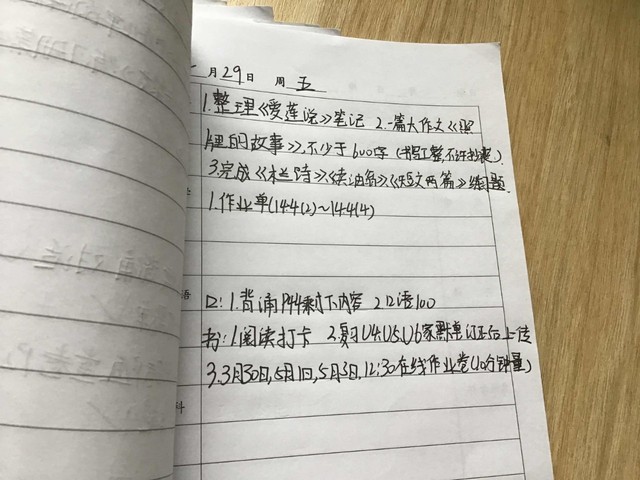 月29日 周五
1.整理《爱莲说》笔记 2.一篇大作文《照
片里的故事》,不少于600字(书写工整,不许抄袭).
3.完成《木兰诗》《卖油翁》《短文两篇》练习题.
学
1.作业单(14.4(2)~14.4(4)
语
口:1.背诵P44剩下内容 2.口语100
书:1.阅读打卡 2.复习U4,U5,U6家默单订正后上传
3.3月30日,5月1日,5月3日,12:30在线作业卷(40分钟量)
科